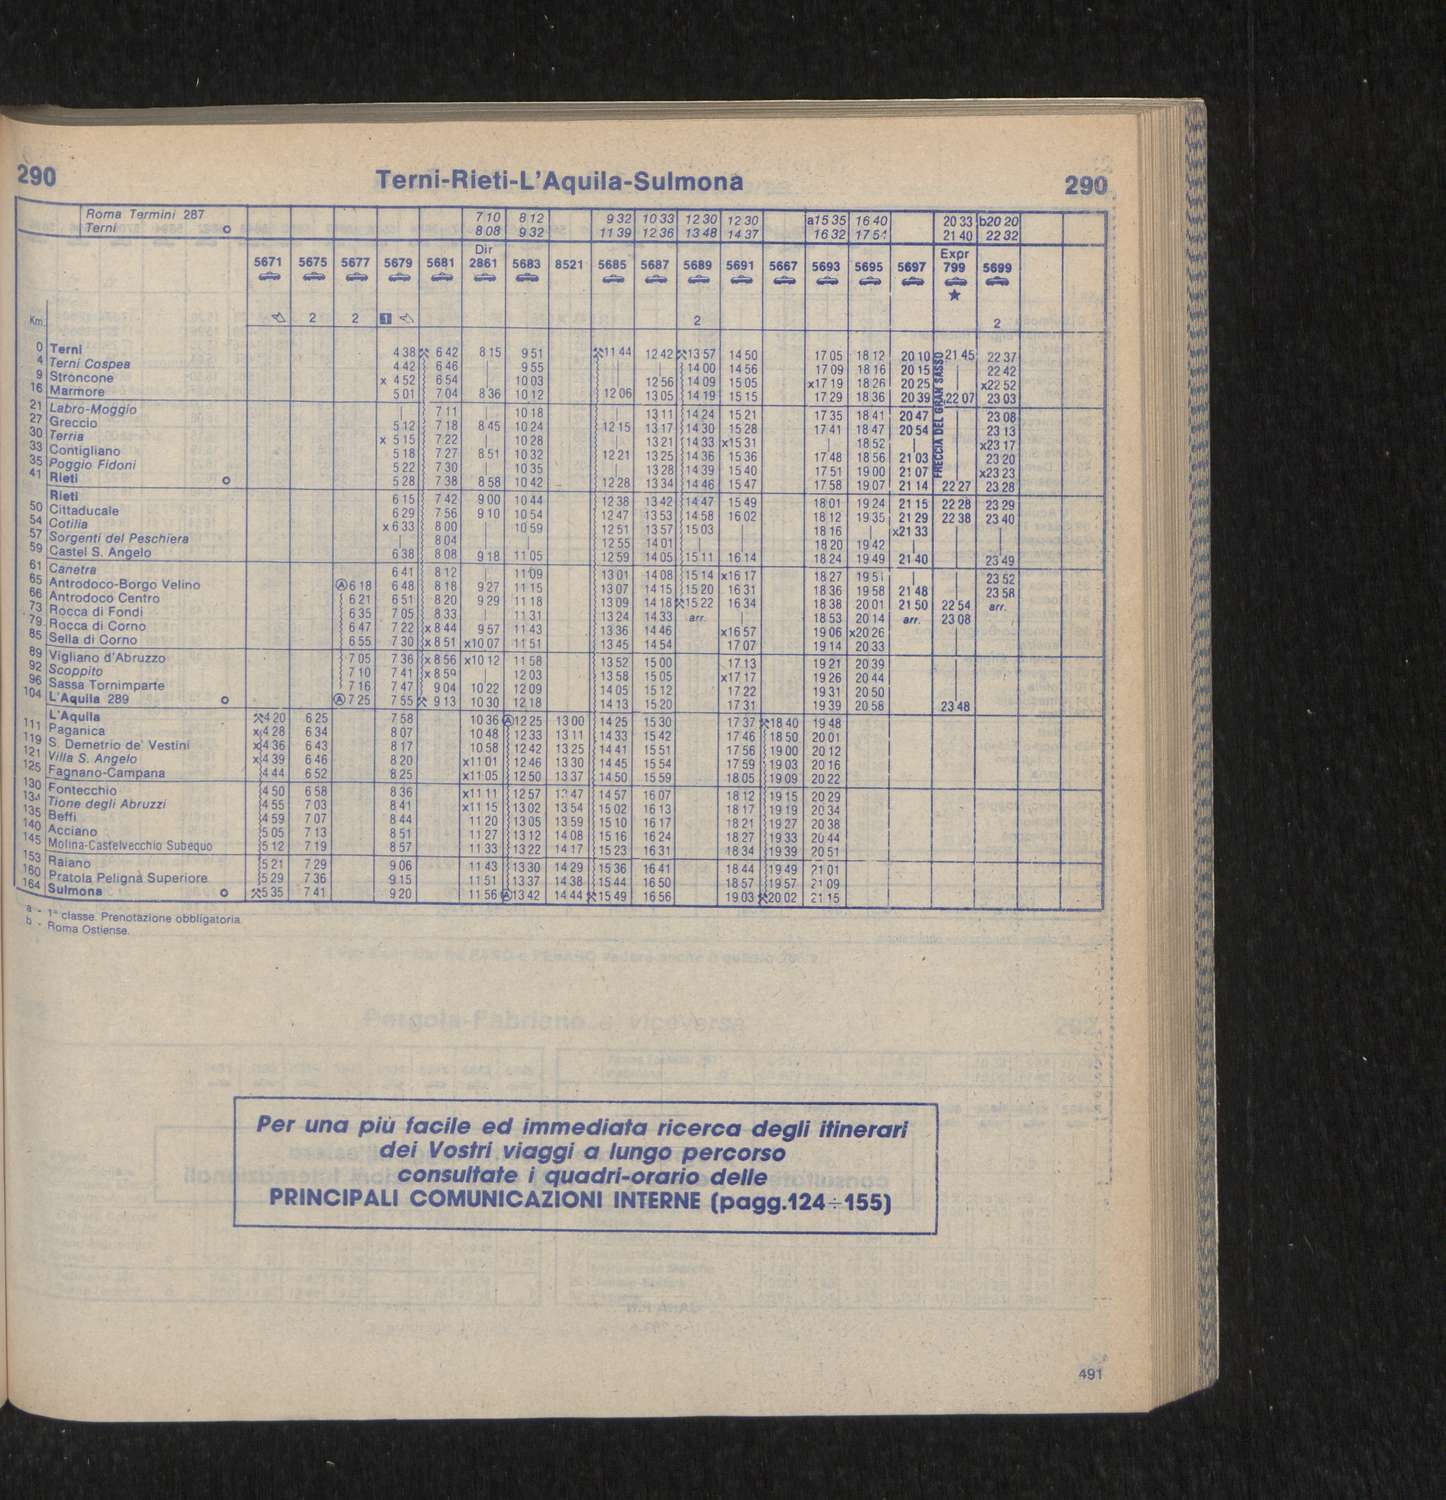 290 Terni-Rieti-L'Aquila-Sulmona 290
Roma Termini 287 7 10 8 12 9 32 10 33 12 30 12 30 a15 35 16 40 20 33 b20 20
Terni 8 08 9 32 11 39 12 36 13 48 14 37 16 32 17 54 21 40 22 32
Dir Expr
5671 5675 5677 5679 5681 2861 5683 8521 5685 5687 5689 5691 5667 5693 5695 5697 799 5699
★
Km. 2 2 1 2 2
FRECCIA DEL GRAN SASSO
0 Terni 4 38 6 42 8 15 9 51 11 44 12 42 13 57 14 50 17 05 18 12 20 10 21 45 22 37
4 Terni Cospea 4 42 6 46 | 9 55 | | 14 00 14 56 17 09 18 16 20 15 | 22 42
9 Stroncone x 4 52 6 54 | 10 03 | 12 56 14 09 15 05 x17 19 18 26 20 25 | x22 52
16 Marmore 5 01 7 04 8 36 10 12 12 06 13 05 14 19 15 15 17 29 18 36 20 39 22 07 23 03
21 Labro-Moggio | 7 11 | 10 18 | 13 11 14 24 15 21 17 35 18 41 20 47 | 23 08
27 Greccio 5 12 7 18 8 45 10 24 12 15 13 17 14 30 15 28 17 41 18 47 20 54 | 23 13
30 Terria x 5 15 7 22 | 10 28 | 13 21 14 33 x15 31 | 18 52 | | x23 17
33 Contigliano 5 18 7 27 8 51 10 32 12 21 13 25 14 36 15 36 17 48 18 56 21 03 | 23 20
35 Poggio Fidoni 5 22 7 30 | 10 35 | 13 28 14 39 15 40 17 51 19 00 21 07 | x23 23
41 Rieti 5 28 7 38 8 58 10 42 12 28 13 34 14 46 15 47 17 58 19 07 21 14 22 27 23 28
Rieti 6 15 7 42 9 00 10 44 12 38 13 42 14 47 15 49 18 01 19 24 21 15 22 28 23 29
50 Cittaducale 6 29 7 56 9 10 10 54 12 47 13 53 14 58 16 02 18 12 19 35 21 29 22 38 23 40
54 Cotilia x 6 33 8 00 | 10 59 12 51 13 57 15 03 | 18 16 | x21 33 | |
57 Sorgenti del Peschiera | 8 04 | | 12 55 14 01 | | 18 20 19 42 | | |
59 Castel S. Angelo 6 38 8 08 9 18 11 05 12 59 14 05 15 11 16 14 18 24 19 49 21 40 | 23 49
61 Canetra 6 41 8 12 | 11 09 13 01 14 08 15 14 x16 17 18 27 19 51 | | 23 52
65 Antrodoco-Borgo Velino Ⓐ 6 18 6 48 8 18 9 27 11 15 13 07 14 15 15 20 16 31 18 36 19 58 21 48 | 23 58
66 Antrodoco Centro 6 21 6 51 8 20 9 29 11 18 13 09 14 18 15 22 16 34 18 38 20 01 21 50 22 54 arr.
73 Rocca di Fondi 6 35 7 05 8 33 | 11 31 13 24 14 33 arr. | 18 53 20 14 arr. 23 08
79 Rocca di Corno 6 47 7 22 x 8 44 9 57 11 43 13 36 14 46 x16 57 19 06 x20 26 |
85 Sella di Corno 6 55 7 30 x 8 51 x10 07 11 51 13 45 14 54 17 07 19 14 20 33 |
89 Vigliano d'Abruzzo 7 05 7 36 x 8 56 x10 12 11 58 13 52 15 00 17 13 19 21 20 39 |
92 Scoppito 7 10 7 41 x 8 59 | 12 03 13 58 15 05 x17 17 19 26 20 44 |
96 Sassa Tornimparte 7 16 7 47 9 04 10 22 12 09 14 05 15 12 17 22 19 31 20 50 |
104 L'Aquila 289 Ⓐ 7 25 7 55 9 13 10 30 12 18 14 13 15 20 17 31 19 39 20 58 23 48
L'Aquila 4 20 6 25 7 58 10 36 Ⓐ12 25 13 00 14 25 15 30 17 37 18 40 19 48
111 Paganica x 4 28 6 34 8 07 10 48 12 33 13 11 14 33 15 42 17 46 18 50 20 01
119 S. Demetrio de' Vestini x 4 36 6 43 8 17 10 58 12 42 13 25 14 41 15 51 17 56 19 00 20 12
121 Villa S. Angelo x 4 39 6 46 8 20 x11 01 12 46 13 30 14 45 15 54 17 59 19 03 20 16
125 Fagnano-Campana 4 44 6 52 8 25 x11 05 12 50 13 37 14 50 15 59 18 05 19 09 20 22
130 Fontecchio 4 50 6 58 8 36 x11 11 12 57 13 47 14 57 16 07 18 12 19 15 20 29
134 Tione degli Abruzzi 4 55 7 03 8 41 x11 15 13 02 13 54 15 02 16 13 18 17 19 19 20 34
135 Beffi 4 59 7 07 8 44 11 20 13 05 13 59 15 10 16 17 18 21 19 27 20 38
140 Acciano 5 05 7 13 8 51 11 27 13 12 14 08 15 16 16 24 18 27 19 33 20 44
145 Molina-Castelvecchio Subequo 5 12 7 19 8 57 11 33 13 22 14 17 15 23 16 31 18 34 19 39 20 51
153 Raiano 5 21 7 29 9 06 11 43 13 30 14 29 15 36 16 41 18 44 19 49 21 01
160 Pratola Peligna Superiore 5 29 7 36 9 15 11 51 13 37 14 38 15 44 16 50 18 57 19 57 21 09
164 Sulmona 5 35 7 41 9 20 11 56 Ⓐ13 42 14 44 15 49 16 56 19 03 20 02 21 15
a - 1ª classe. Prenotazione obbligatoria.
b - Roma Ostiense.
Per una più facile ed immediata ricerca degli itinerari
dei Vostri viaggi a lungo percorso
consultate i quadri-orario delle
PRINCIPALI COMUNICAZIONI INTERNE (pagg.124÷155)
491